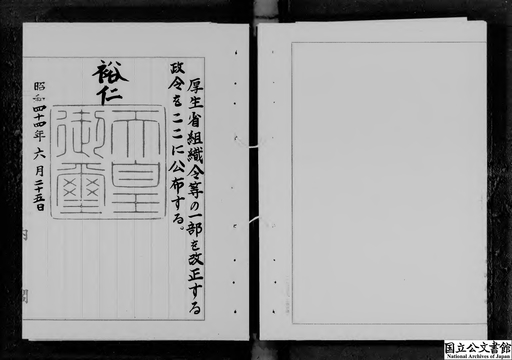 厚生省組織令等の一部を改正する
政令をここに公布する。
裕仁
天皇
御璽
昭和四十四年六月二十五日
内閣
国立公文書館
National Archives of Japan